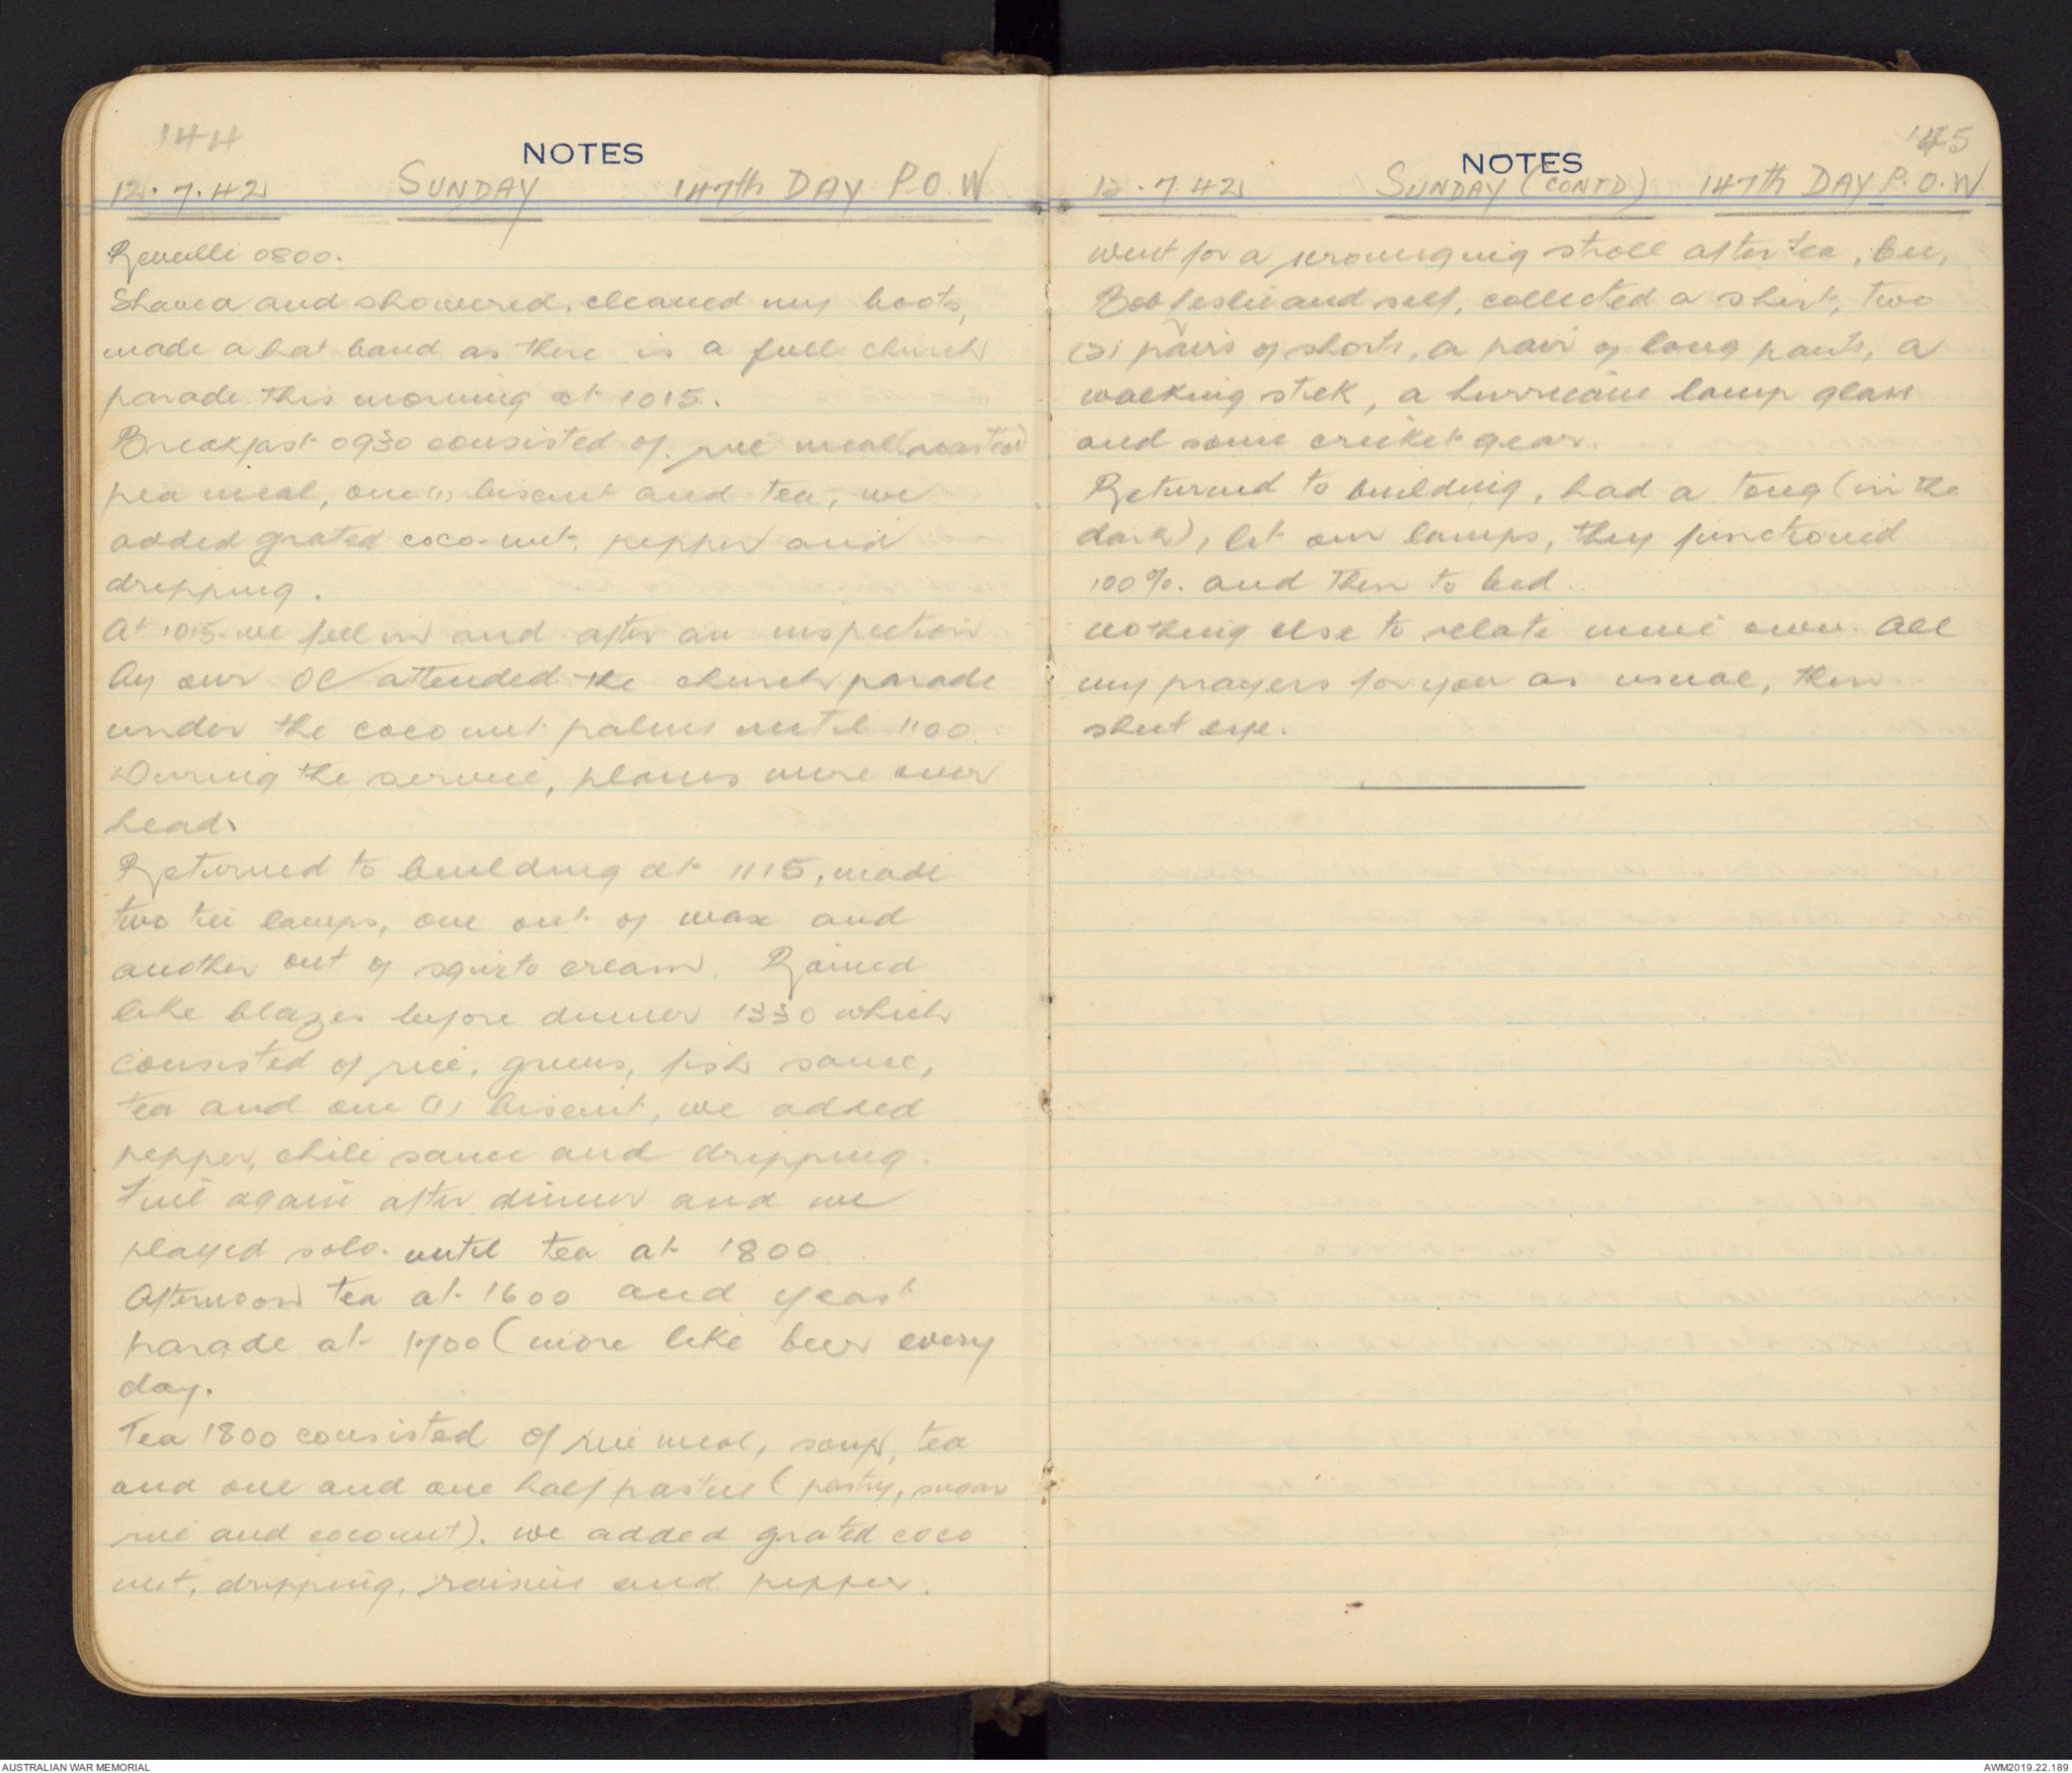 144
NOTES
12.7.42 SUNDAY 147th DAY P.O.W
Revielli 0800.
Shaved and showered, cleaned my boots,
made a hat band as there is a full church
parade this morning at 1015.
Breakfast 0930 consisted of rice meal (roasted)
pea meal, one (1) biscuit and tea, we
added grated coco-nut, pepper and
dripping.
At 1015 we fell in and after an inspection
by our OC attended the church parade
under the coco nut palms until 1100.
During the service, planes were over
head.
Returned to building at 1115, made
two tin lamps, one out of wax and
another out of squirto cream. Rained
like blazes before dinner 1330 which
consisted of rice, greens, fish sauce,
tea and one (1) biscuit, we added
pepper, chili sauce and dripping.
Fine again after dinner and we
played solo. until tea at 1800.
Afternoon tea at 1600 and yeast
parade at 1700 (more like beer every
day.
Tea 1800 consisted of rice meal, soup, tea
and one and one half pasties (pastry, sugar
rice and coconut). we added grated coco
nut, dripping, raisins and pepper.
145
NOTES
12.7.42 SUNDAY (CONTD) 147th DAY P.O.W
Went for a scrounging stroll after tea,
Bob Leslie and self, collected a shirt, two
(2) pairs of shorts, a pair of long pants, a
walking stick, a hurricane lamp glass
and some cricket gear.
Returned to building, had a tong (in the
dark), lit our lamps, they functioned
100%. and then to bed.
nothing else to relate mine own. All
my prayers for you as usual, then
shut eye.
AUSTRALIAN WAR MEMORIAL
AWM2019.22.189